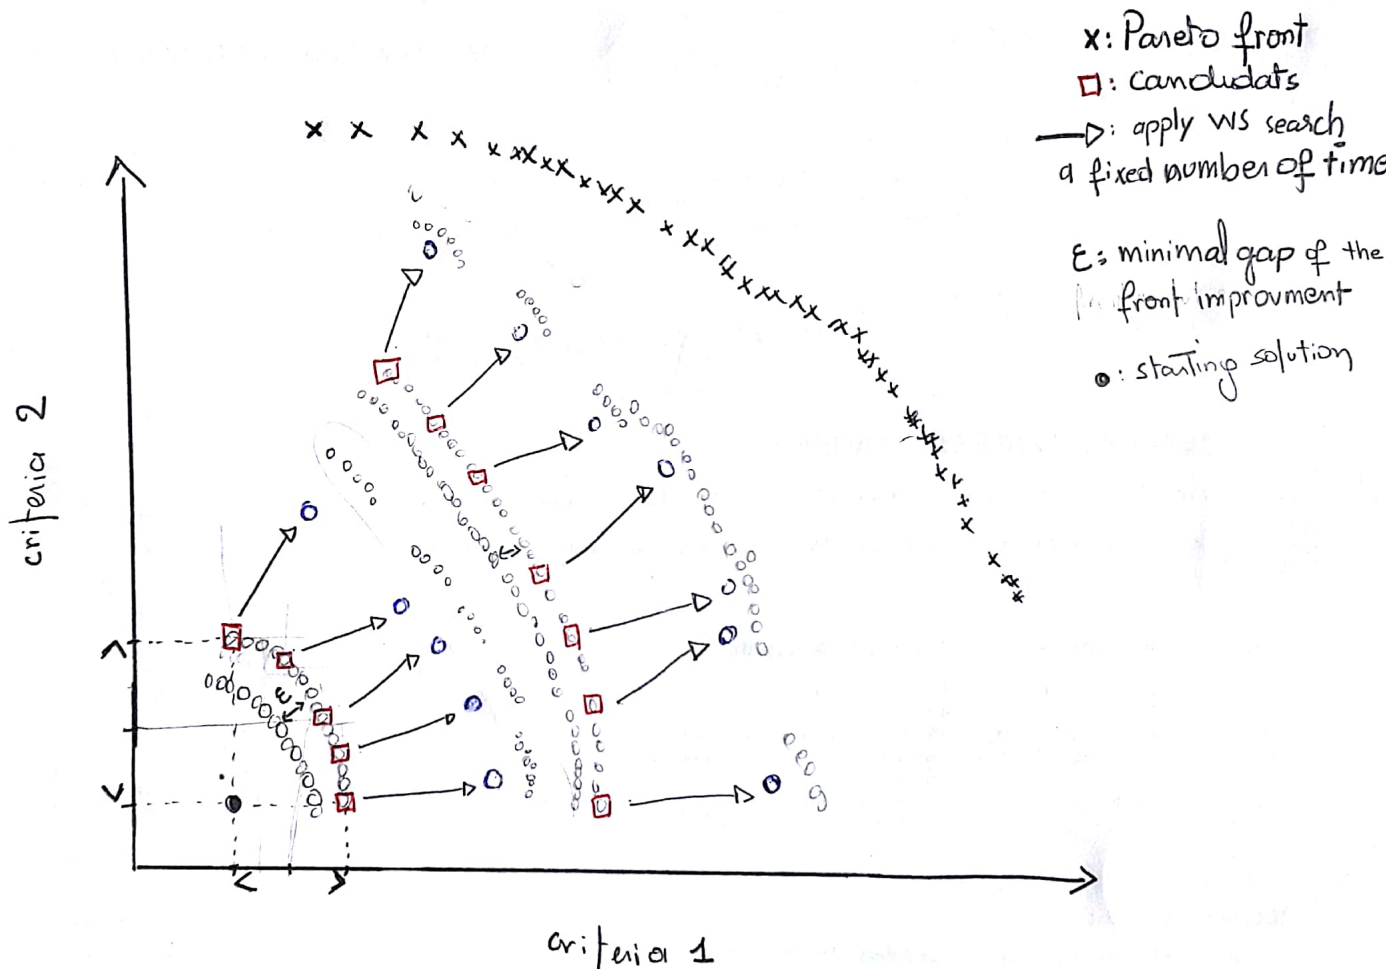 x: Pareto front
□: candidats
→: apply WS search
a fixed number of time
ε: minimal gap of the
front improvment
●: starting solution
criteria 2
ε
criteria 1